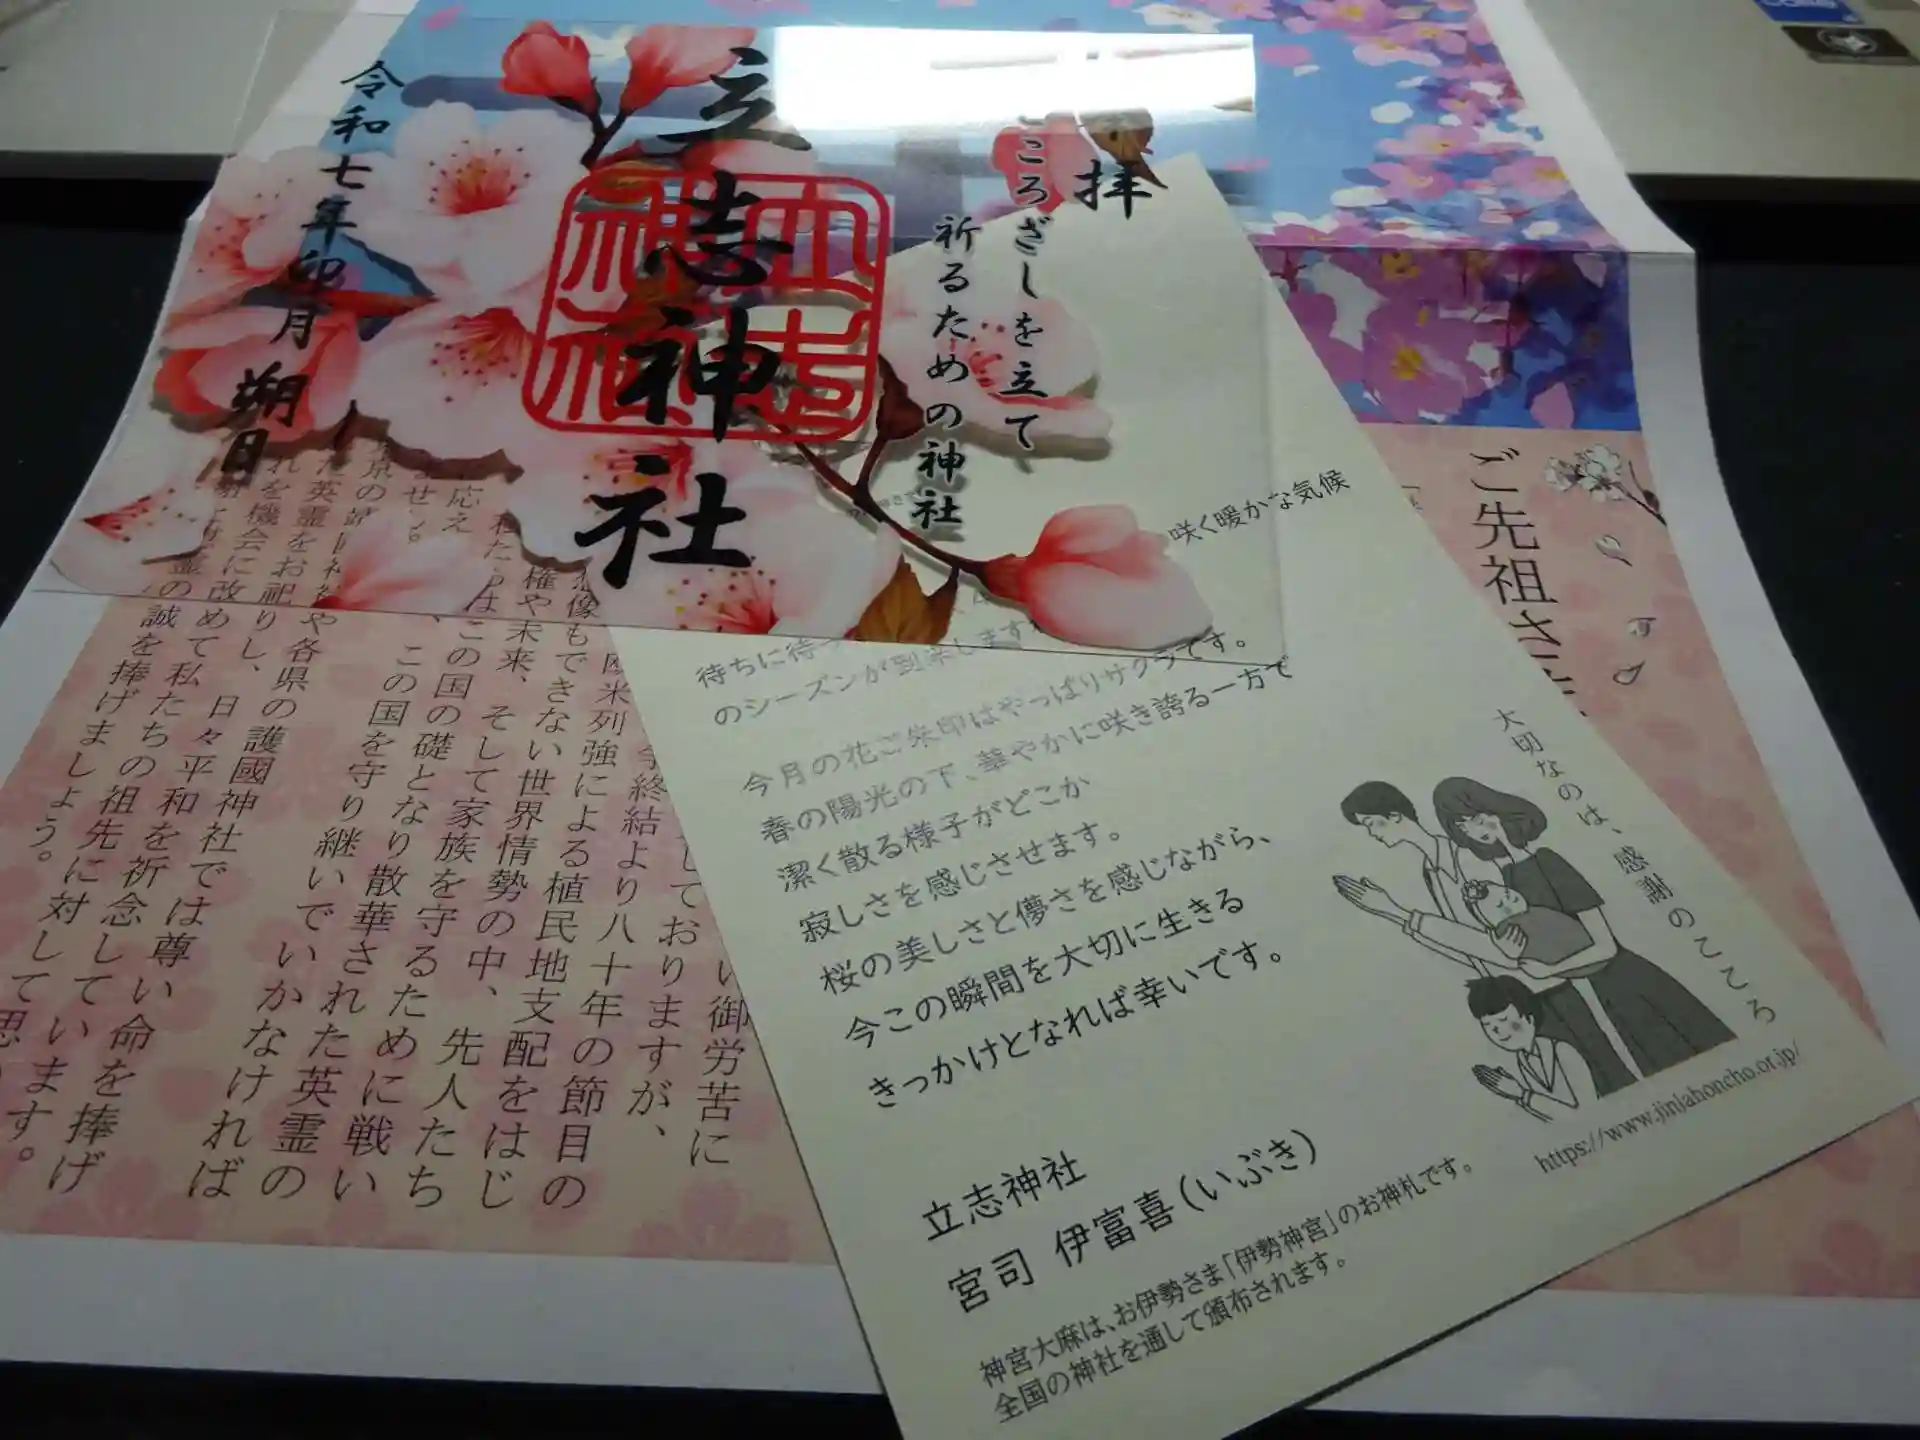 拝
こころざしを立て
祈るための神社
立志神社
令和七年卯月
朔日
咲く暖かな気候
のシーズンが到来します
今月の花ご朱印はやっぱりサクラです。
春の陽光の下、華やかに咲き誇る一方で
潔く散る様子がどこか
寂しさを感じさせます。
桜の美しさと儚さを感じながら、
今この瞬間を大切に生きる
きっかけとなれば幸いです。
立志神社
宮司 伊富喜(いぶき)
神宮大麻は、お伊勢さま「伊勢神宮」のお神札です。
全国の神社を通して頒布されます。
大切なのは、感謝のこころ
https://www.jinjahoncho.or.jp/
ご先祖さ
い御労苦に
しておりますが、
終結より八十年の節目の
欧米列強による植民地支配をはじ
想像もできない世界情勢の中、先人たち
権や未来、そして家族を守るために戦い
はこの国の礎となり散華された英霊の
、この国を守り継いでいかなければ
応え
ません。
や各県の護國神社では尊い命を捧げ
た英霊をお祀りし、日々平和を祈念しています。
れを機会に改めて私たちの祖先に対して思
の誠を捧げましょう。